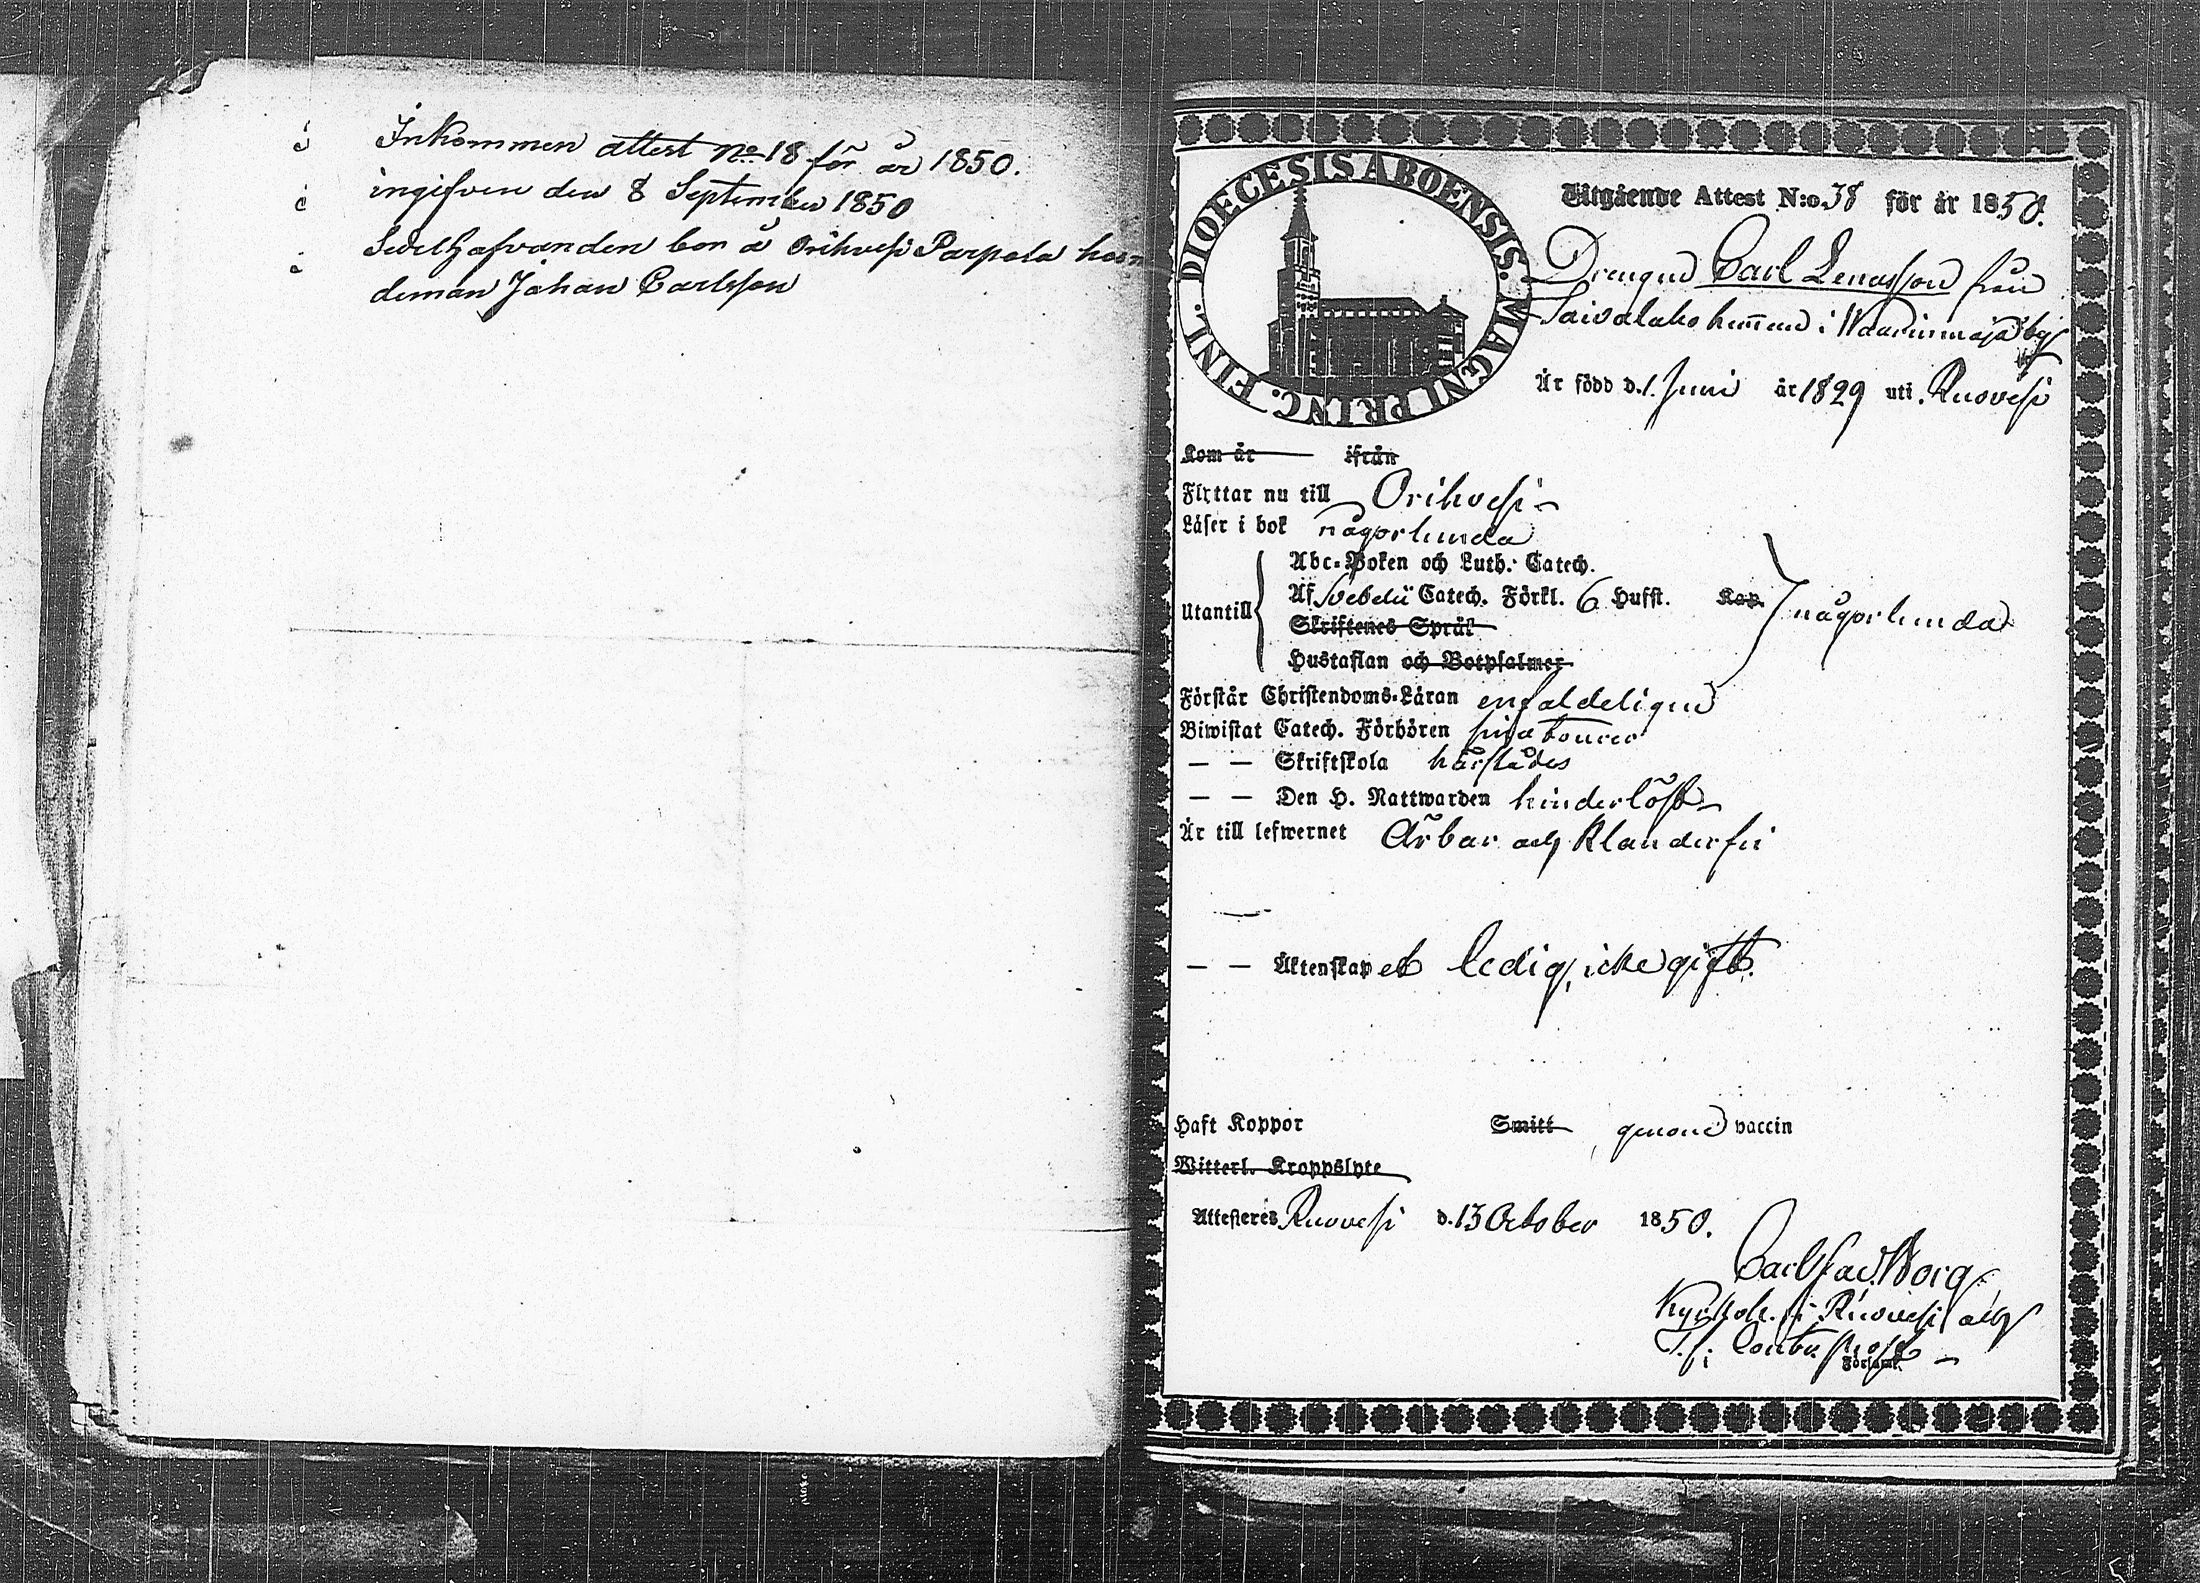 Inkommen attest No 18 för år 1850.
ingifven den 8 September 1850
Sedelhafvanden bor å Orihvesi Parpala hos
deman Johan Carlsson
DIOECESIS ABOENSIS. MAGNI PRINC. FINL.
Utgående Attest N:o 38 för år 1850.
Drengen Carl Lenasson från
Taivalaho hemman i Waarinmaja by
Är född d. 1. Juni år 1829 uti Ruovesi
Kom år ifrån
Flyttar nu till Orihvesi
Läser i bok någorlunda
Abc-Boken och Luth. Catech.
Utantill Af Svebelii Catech. Förkl. 6 Hufst. Kap. någorlunda
Skriftenes Språk
Hustaflan och Botpsalmer
Förstår Christendoms-Läran enfaldeligen
Biwistat Catech. Förhören sina tourer
— — Skriftskola härstädes
— — Den H. Nattwarden hinderlöst
Är till lefwernet Ärbar och klanderfri
— — Äktenskapet ledig, icke gift.
Haft Koppor Smitt genom vaccin
Witterl. Kroppslyte
Attesteres Ruovesi d. 13 October 1850.
Carl Borg
Kyrkoh. i Ruovesi och
T. f. Contr. Prost
Församl.